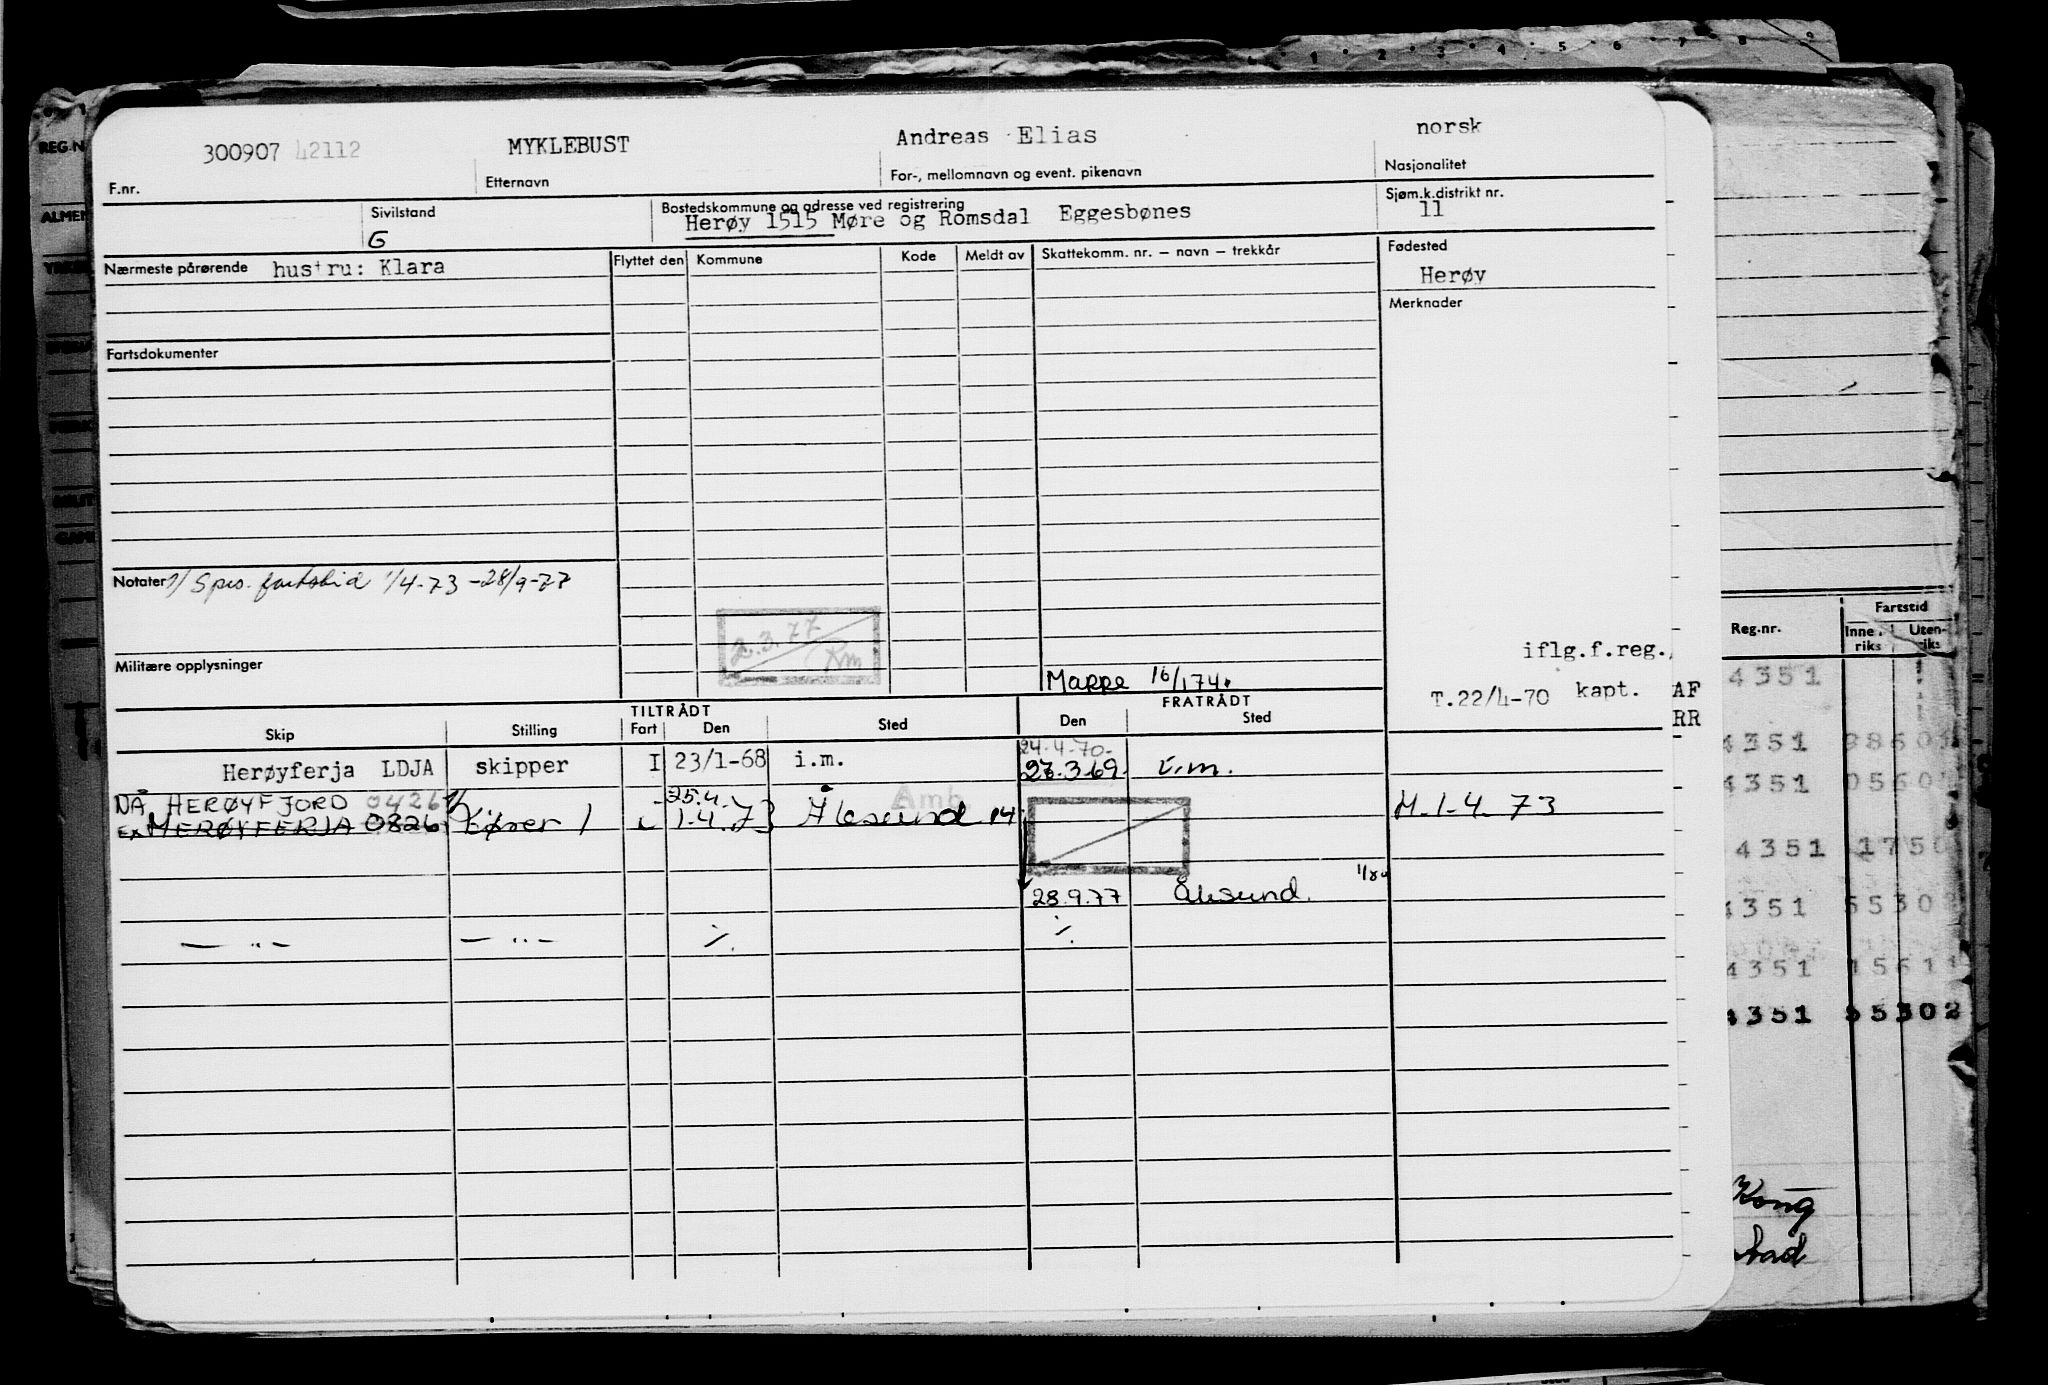 1 2 3 4 5 6 7 8 9
REG.N
300907 42112
MYKLEBUST
Andreas Elias
norsk
F.nr.
Etternavn
For-, mellomnavn og event. pikenavn
Nasjonalitet
ALMEN
Sivilstand
G
Bostedskommune og adresse ved registrering
Herøy 1515 Møre og Romsdal Eggesbønes
Sjøm.k.distrikt nr.
11
Nærmeste pårørende hustru: Klara
Flyttet den
Kommune
Kode
Meldt av
Skattekomm. nr. – navn – trekkår
Fødested
Herøy
Merknader
Fartsdokumenter
Notater 1/ Spes. fartstid 1/4-73 -28/9-77
2.3.77
Km
Militære opplysninger
Mappe 16/174.
iflg.f.reg.,
T.22/4-70 kapt.
AF
RR
TILTRÅDT
FRATRÅDT
Skip
Stilling
Fart
Den
Sted
Den
Sted
24.4.70.
Herøyferja LDJA skipper I 23/1-68 i.m. 23.3.69. i.m.
NÅ HERØYFJORD 0426 1/ 25.4. Amb.
EX HERØYFERJA 0826 fører 1 i 1.4.73 Ålesund 14 M.1-4.73
28.9.77 Ålesund. 1/80
— " — — " — ·/. ·/.
Fartstid
Reg.nr.
Innenriks
Utenriks
4351
4351 9860
4351 0560
4351 1750
4351 5530
4351 1561
4351 55302
Kong